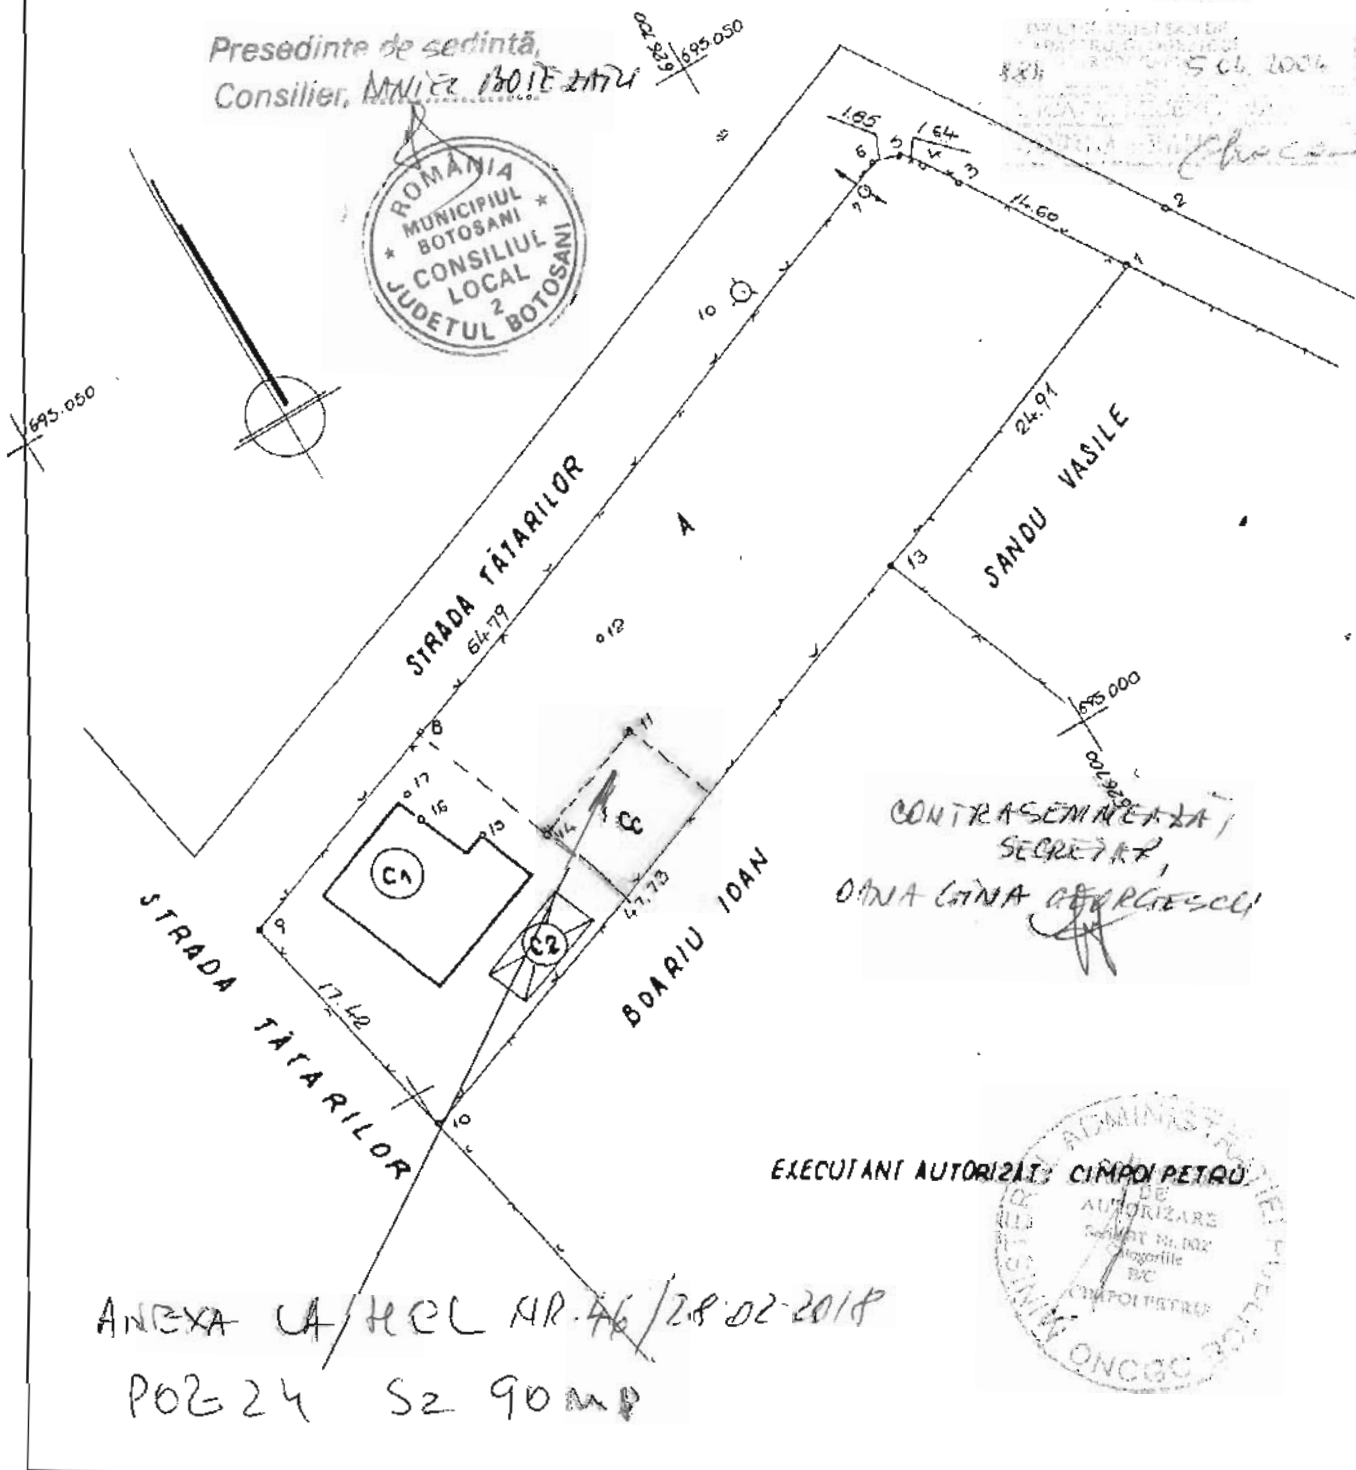 Presedinte de sedintă,
Consilier, DANIEL BOIEZATU
ROMÂNIA
MUNICIPIUL
BOTOSANI
CONSILIUL
LOCAL
2
JUDETUL BOTOSANI
626700
695.050
5 04. 2004
1.85
1.64
6
5
4
3
7
14.60
2
1
10
695.050
24.91
SANDU VASILE
STRADA TĂTARILOR
64.79
A
12
13
695.000
626700
8
11
17
16
15
14
C1
CC
C2
47.73
BOARIU IOAN
9
17.42
STRADA TĂTARILOR
10
CONTRASEMNEAZA,
SECRETAR,
OANA GINA GEORGESCU
EXECUTANT AUTORIZAT: CIMPOI PETRU
MINISTERUL ADMINISTRAȚIEI PUBLICE
DE
AUTORIZARE
CIMPOI PETRU
ONCGC
ANEXA LA HCL NR. 46/28.02.2018
POZ 24 S= 90 mp